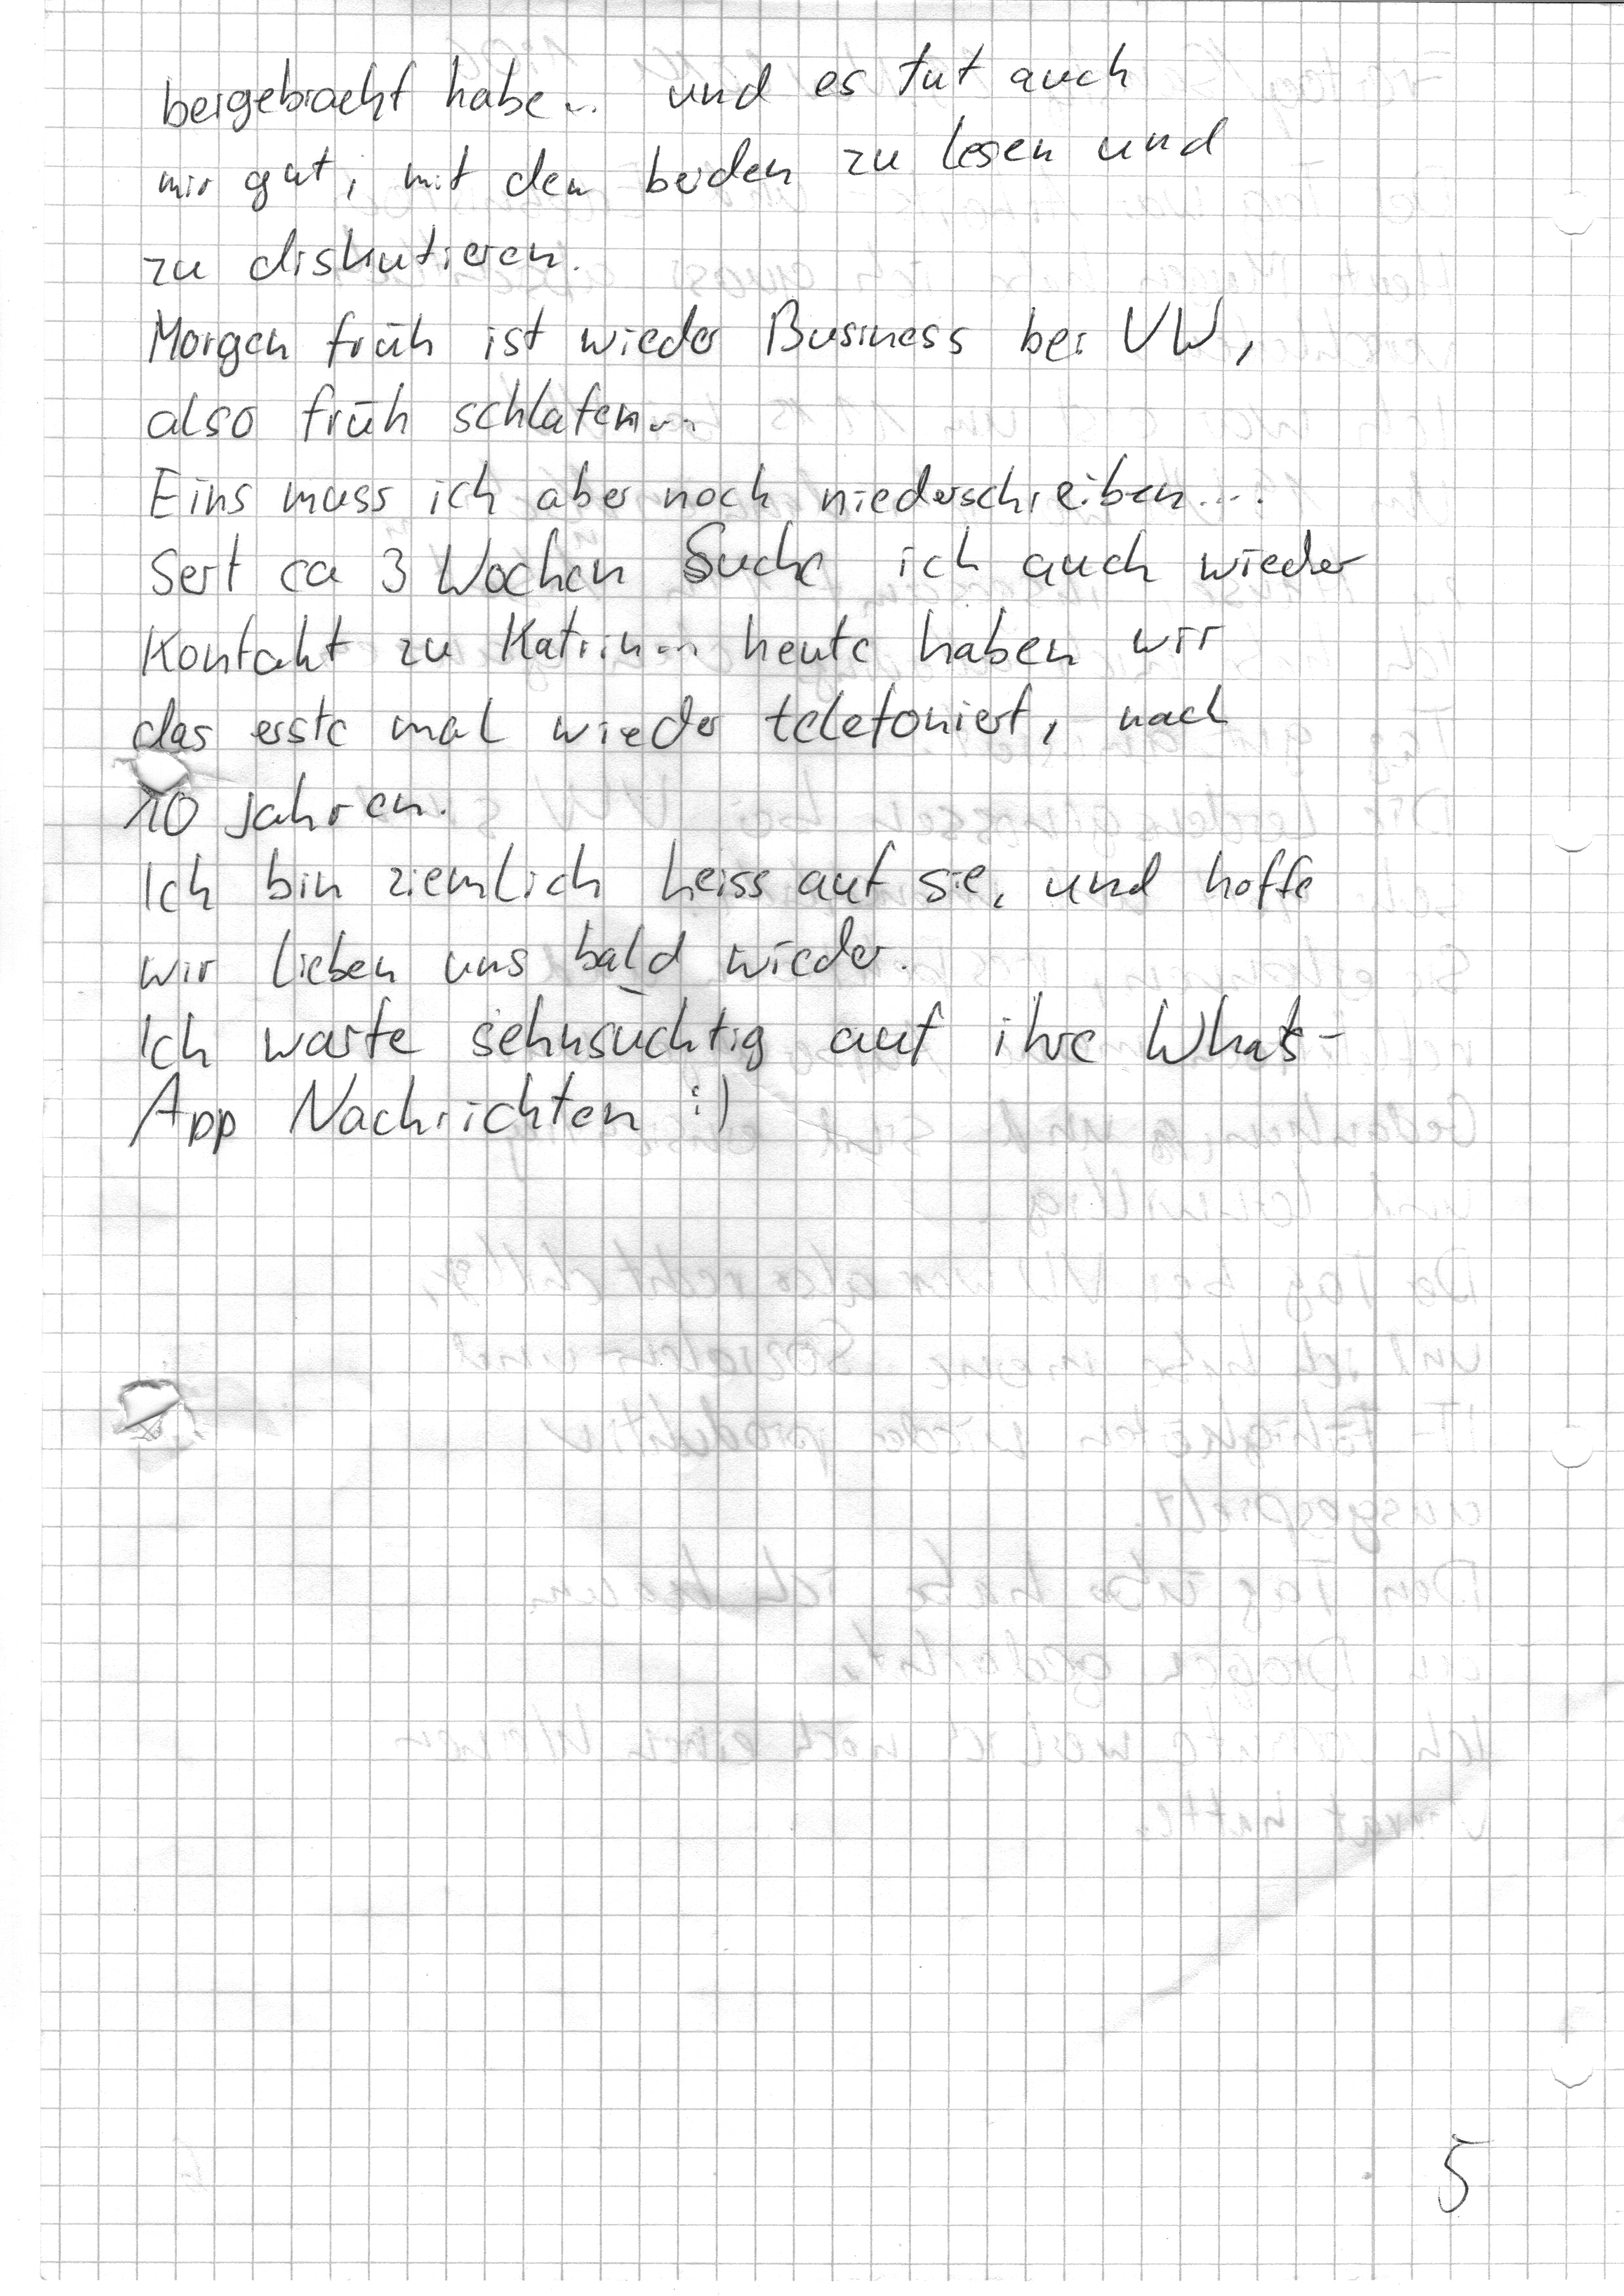 bergebracht habe... und es tut auch
mir gut, mit den beiden zu lesen und
zu diskutieren.
Morgen früh ist wieder Business bei VW,
also früh schlafen...
Eins muss ich aber noch niederschreiben....
Seit ca 3 Wochen Suche ich auch wieder
Kontakt zu Katrin... heute haben wir
das erste mal wieder telefoniert, nach
10 jahren.
Ich bin ziemlich heiss auf sie, und hoffe
wir lieben uns bald wieder.
Ich warte sehnsüchtig auf ihre Whats-
App Nachrichten :)
5